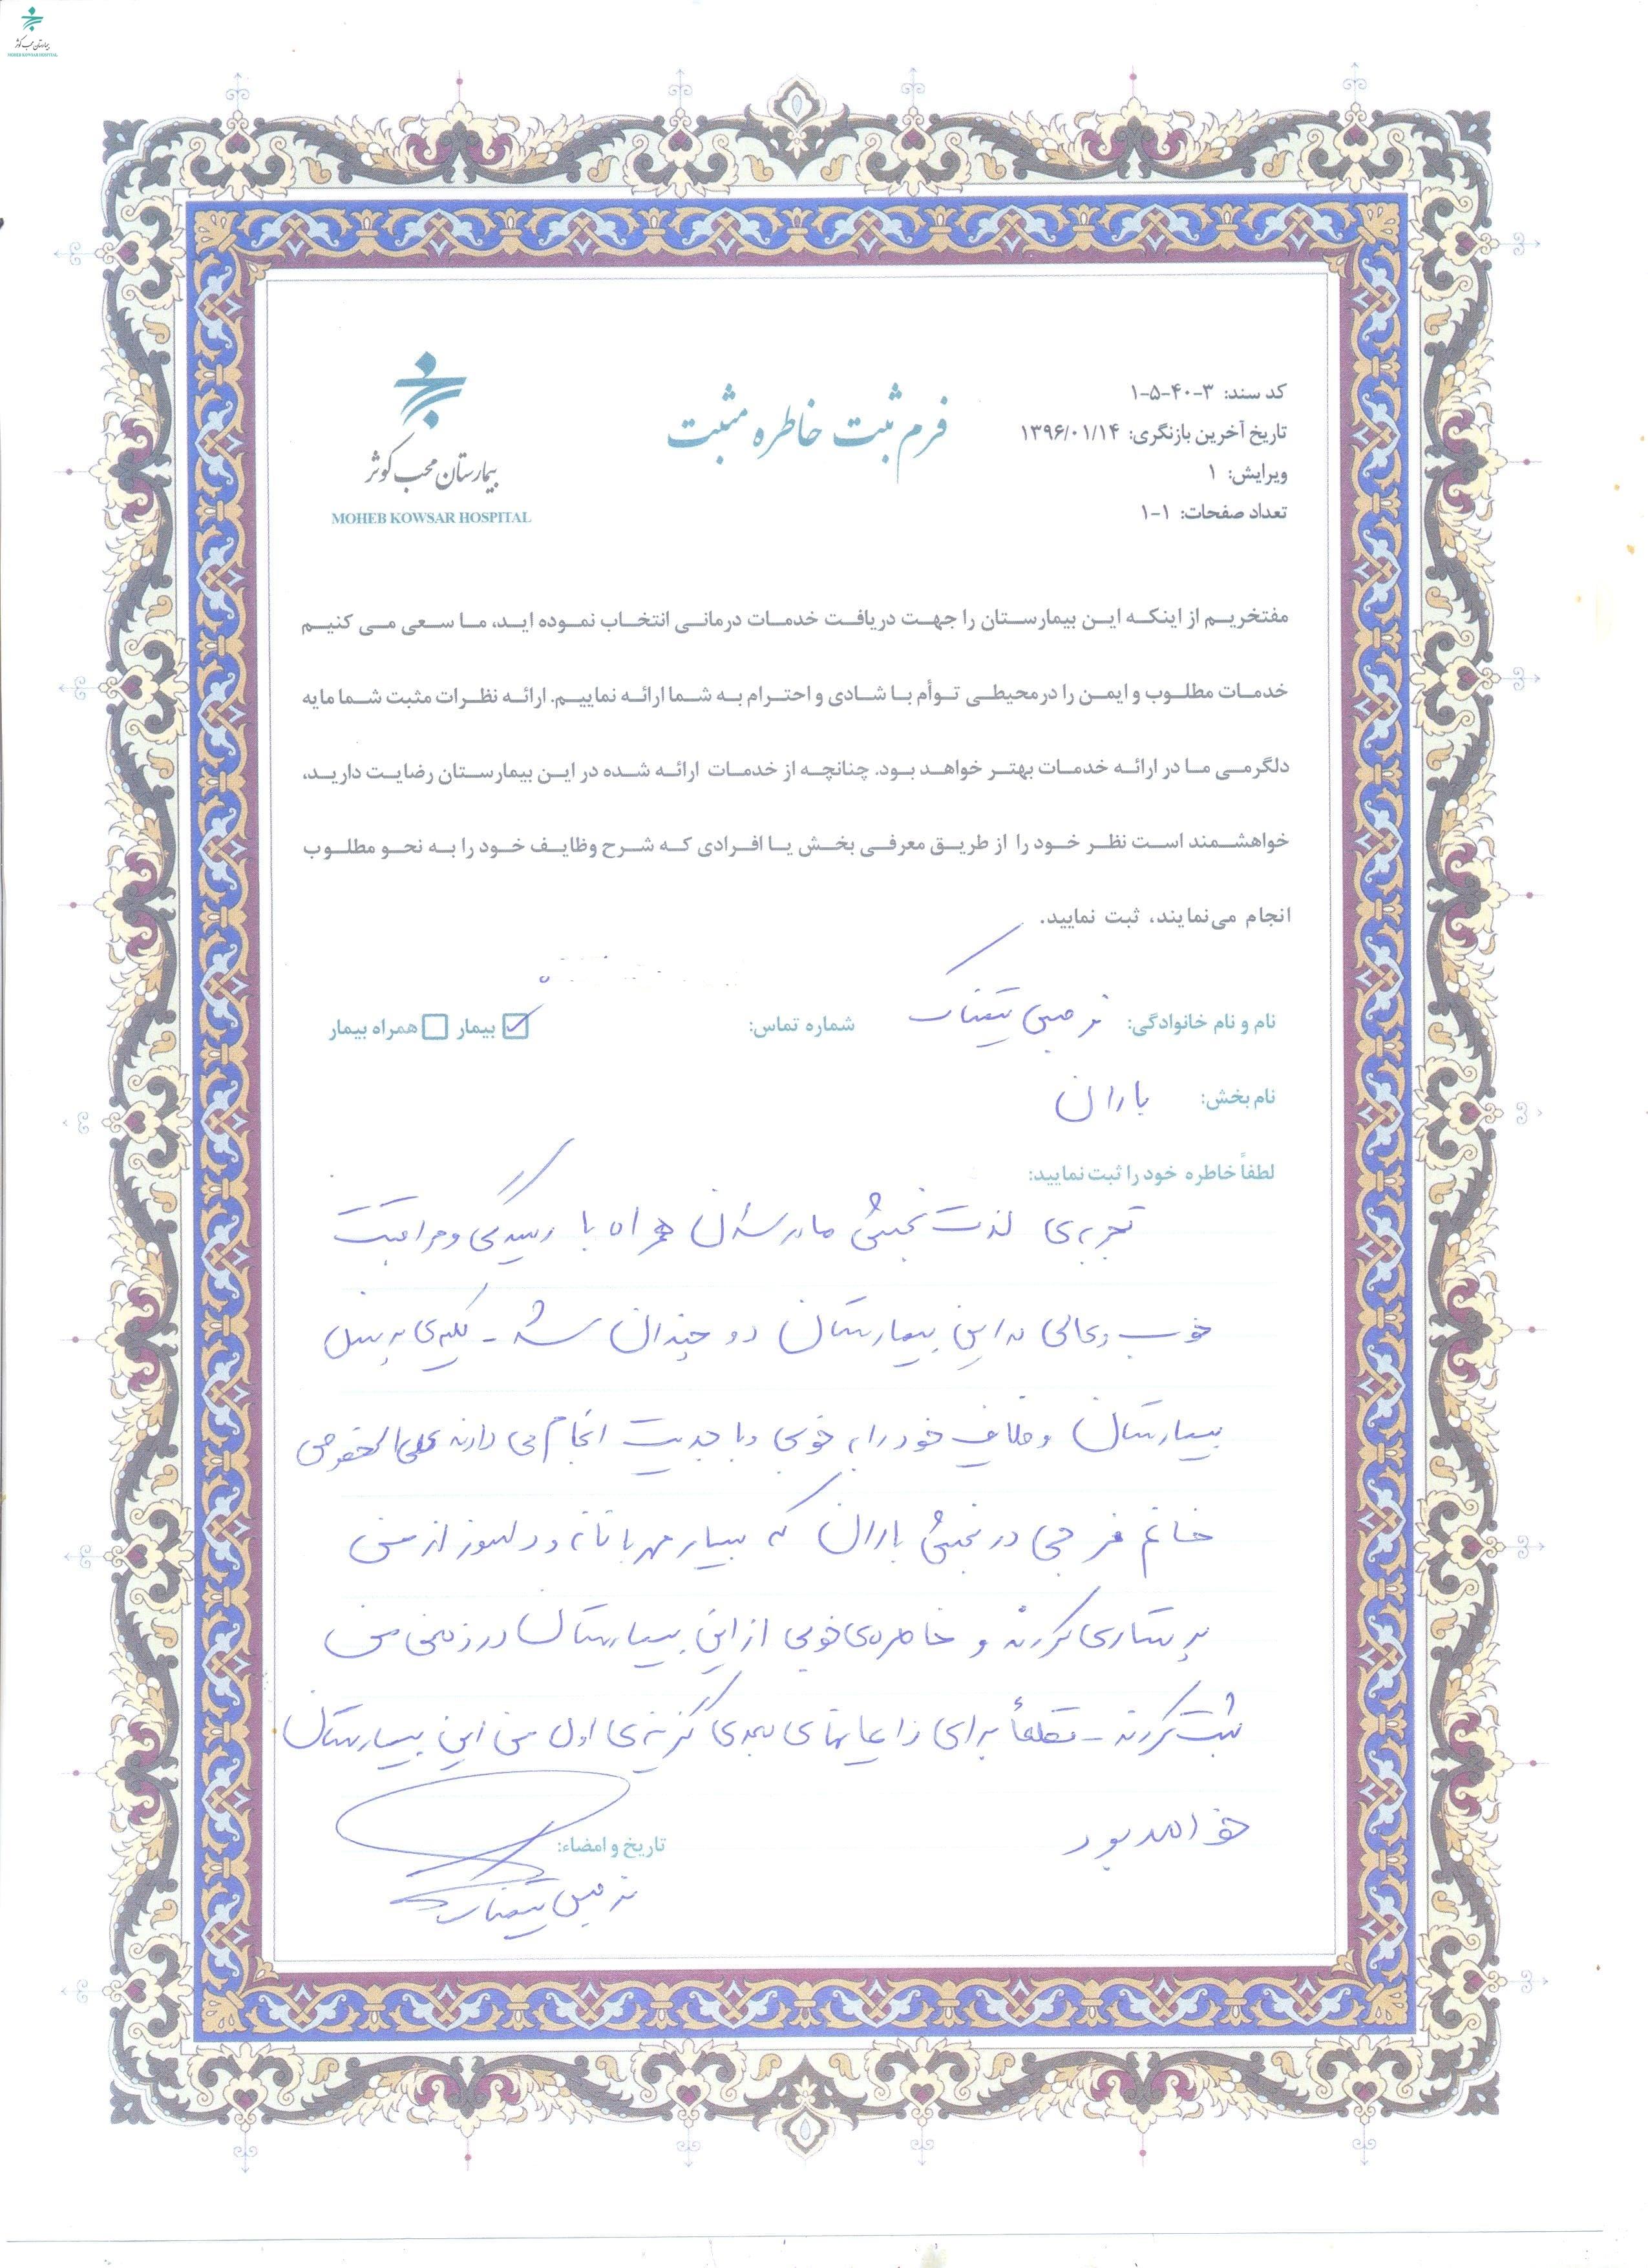 بیمارستان محب کوثر
MOHEB KOWSAR HOSPITAL
کد سند: ۳-۴۰-۵-۱
تاریخ آخرین بازنگری: ۱۳۹۶/۰۱/۱۴
ویرایش: ۱
تعداد صفحات: ۱-۱
فرم ثبت خاطره مثبت
بیمارستان محب کوثر
MOHEB KOWSAR HOSPITAL
مفتخریم از اینکه این بیمارستان را جهت دریافت خدمات درمانی انتخاب نموده اید، ما سعی می کنیم
خدمات مطلوب و ایمن را در محیطی توأم با شادی و احترام به شما ارائه نماییم. ارائه نظرات مثبت شما مایه
دلگرمی ما در ارائه خدمات بهتر خواهد بود. چنانچه از خدمات ارائه شده در این بیمارستان رضایت دارید،
خواهشمند است نظر خود را از طریق معرفی بخش یا افرادی که شرح وظایف خود را به نحو مطلوب
انجام می‌نمایند، ثبت نمایید.
نام و نام خانوادگی: شماره تماس: بیمار همراه بیمار
نام بخش: باران
لطفاً خاطره خود را ثبت نمایید:
تجربه‌ی لذت بخش مادر شدن همراه با رسیدگی و مراقبت
خوب و عالی در این بیمارستان دو چندان شد - کلیه‌ی پرسنل
بیمارستان وظایف خود را به خوبی و با جدیت انجام می دارند علی الخصوص
خانم فرجی در بخش باران که بسیار مهربانانه و دلسوز از من
پرستاری کردند و خاطره‌ی خوبی از این بیمارستان در زندگی من
ثبت کردند - قطعاً برای زایمانهای بعدی گزینه‌ی اول من این بیمارستان
خواهد بود
تاریخ و امضاء: